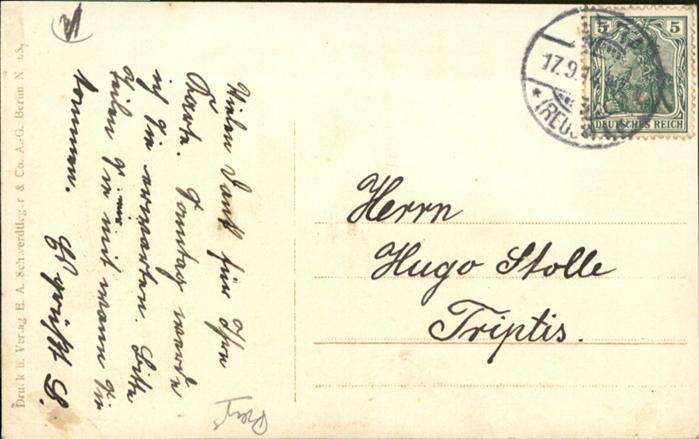 Vielen Dank für Ihre
Karte. Sonntag werde
ich Sie erwarten. Bitte
teilen Sie mir mit wann Sie
kommen. Es grüßt S.
Herrn
Hugo Stolle
Triptis.
5 5
DEUTSCHES REICH
17.9.
(REUSS
Druck u. Verlag E. A. Schwerdtfeger & Co. A.-G. Berlin N.